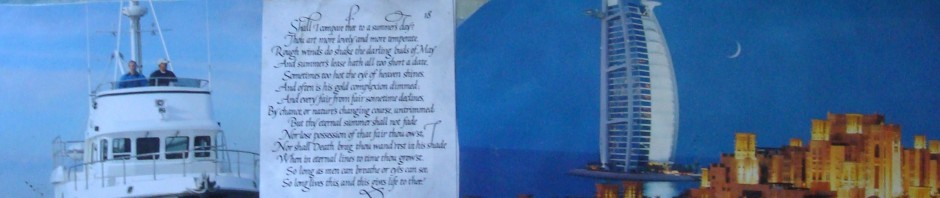 Shall I compare thee to a summer's day?
18
Thou art more lovely and more temperate.
Rough winds do shake the darling buds of May
And summer's lease hath all too short a date.
Sometimes too hot the eye of heaven shines
And often is his gold complexion dimmed.
And every fair from fair sometime declines,
By chance, or nature's changing course, untrimmed.
But thy eternal summer shall not fade
Nor lose possession of that fair thou ow'st,
Nor shall Death brag thou wand'rest in his shade
When in eternal lines to time thou grow'st.
So long as men can breathe or eyes can see,
So long lives this, and this gives life to thee.